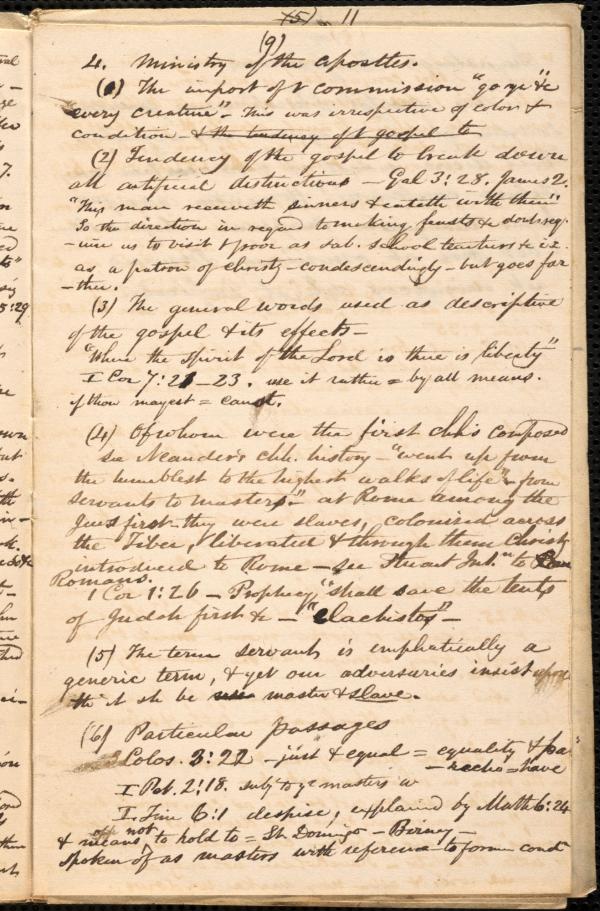 (5) 11
(9)
4. Ministry of the apostles.
(1) The import of t commission "go ye &c
every creature" - This was irrespective of color &
condition - & the tendency of t gospel to
(2) Tendency of the gospel to break down
all artificial distinctions - Gal 3:28. James 2.
"This man receiveth sinners & eateth with them"
So the direction in regard to making feasts & doth req-
-uire us to visit t poor as sab. school teachers &
as a patron of christy - condescendingly - but goes far
-ther.
(3) The general words used as descriptive
of the gospel & its effects -
"Where the spirit of the Lord is there is liberty"
I Cor 7:21-23. use it rather = by all means.
if thou mayest = canst.
(4) Of whom were the first chhs composed
see Neander's chh. history - "went up from
the humblest to the highest walks of life" - from
servants to masters." - at Rome among the
Jews first - they were slaves, colonized across
the Tiber, liberated & through them christy
introduced to Rome - see Stuart Int. to
Romans.
1 Cor 1:26 - Prophecy, "shall save the tents
of Judah first & - "elachistos" -
(5) The term servant is emphatically a
generic term, & yet our adversaries insist upon
tht it sh be master & slave.
(6) Particular passages
Colos. 3:22 - just & equal = equality &
- echo = have
I Pet. 2:18. subj to yr masters
I. Tim 6:1 despise, explained by Math 6:24
& means not to hold to = St Domingo - Birney -
spoken of as masters with reference to former cond